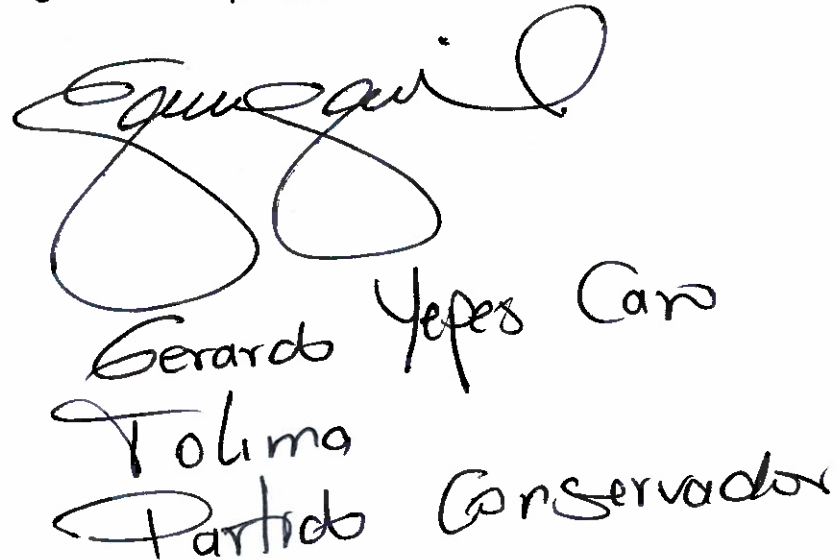 Gerardo Yepes Caro
Tolima
Partido Conservador